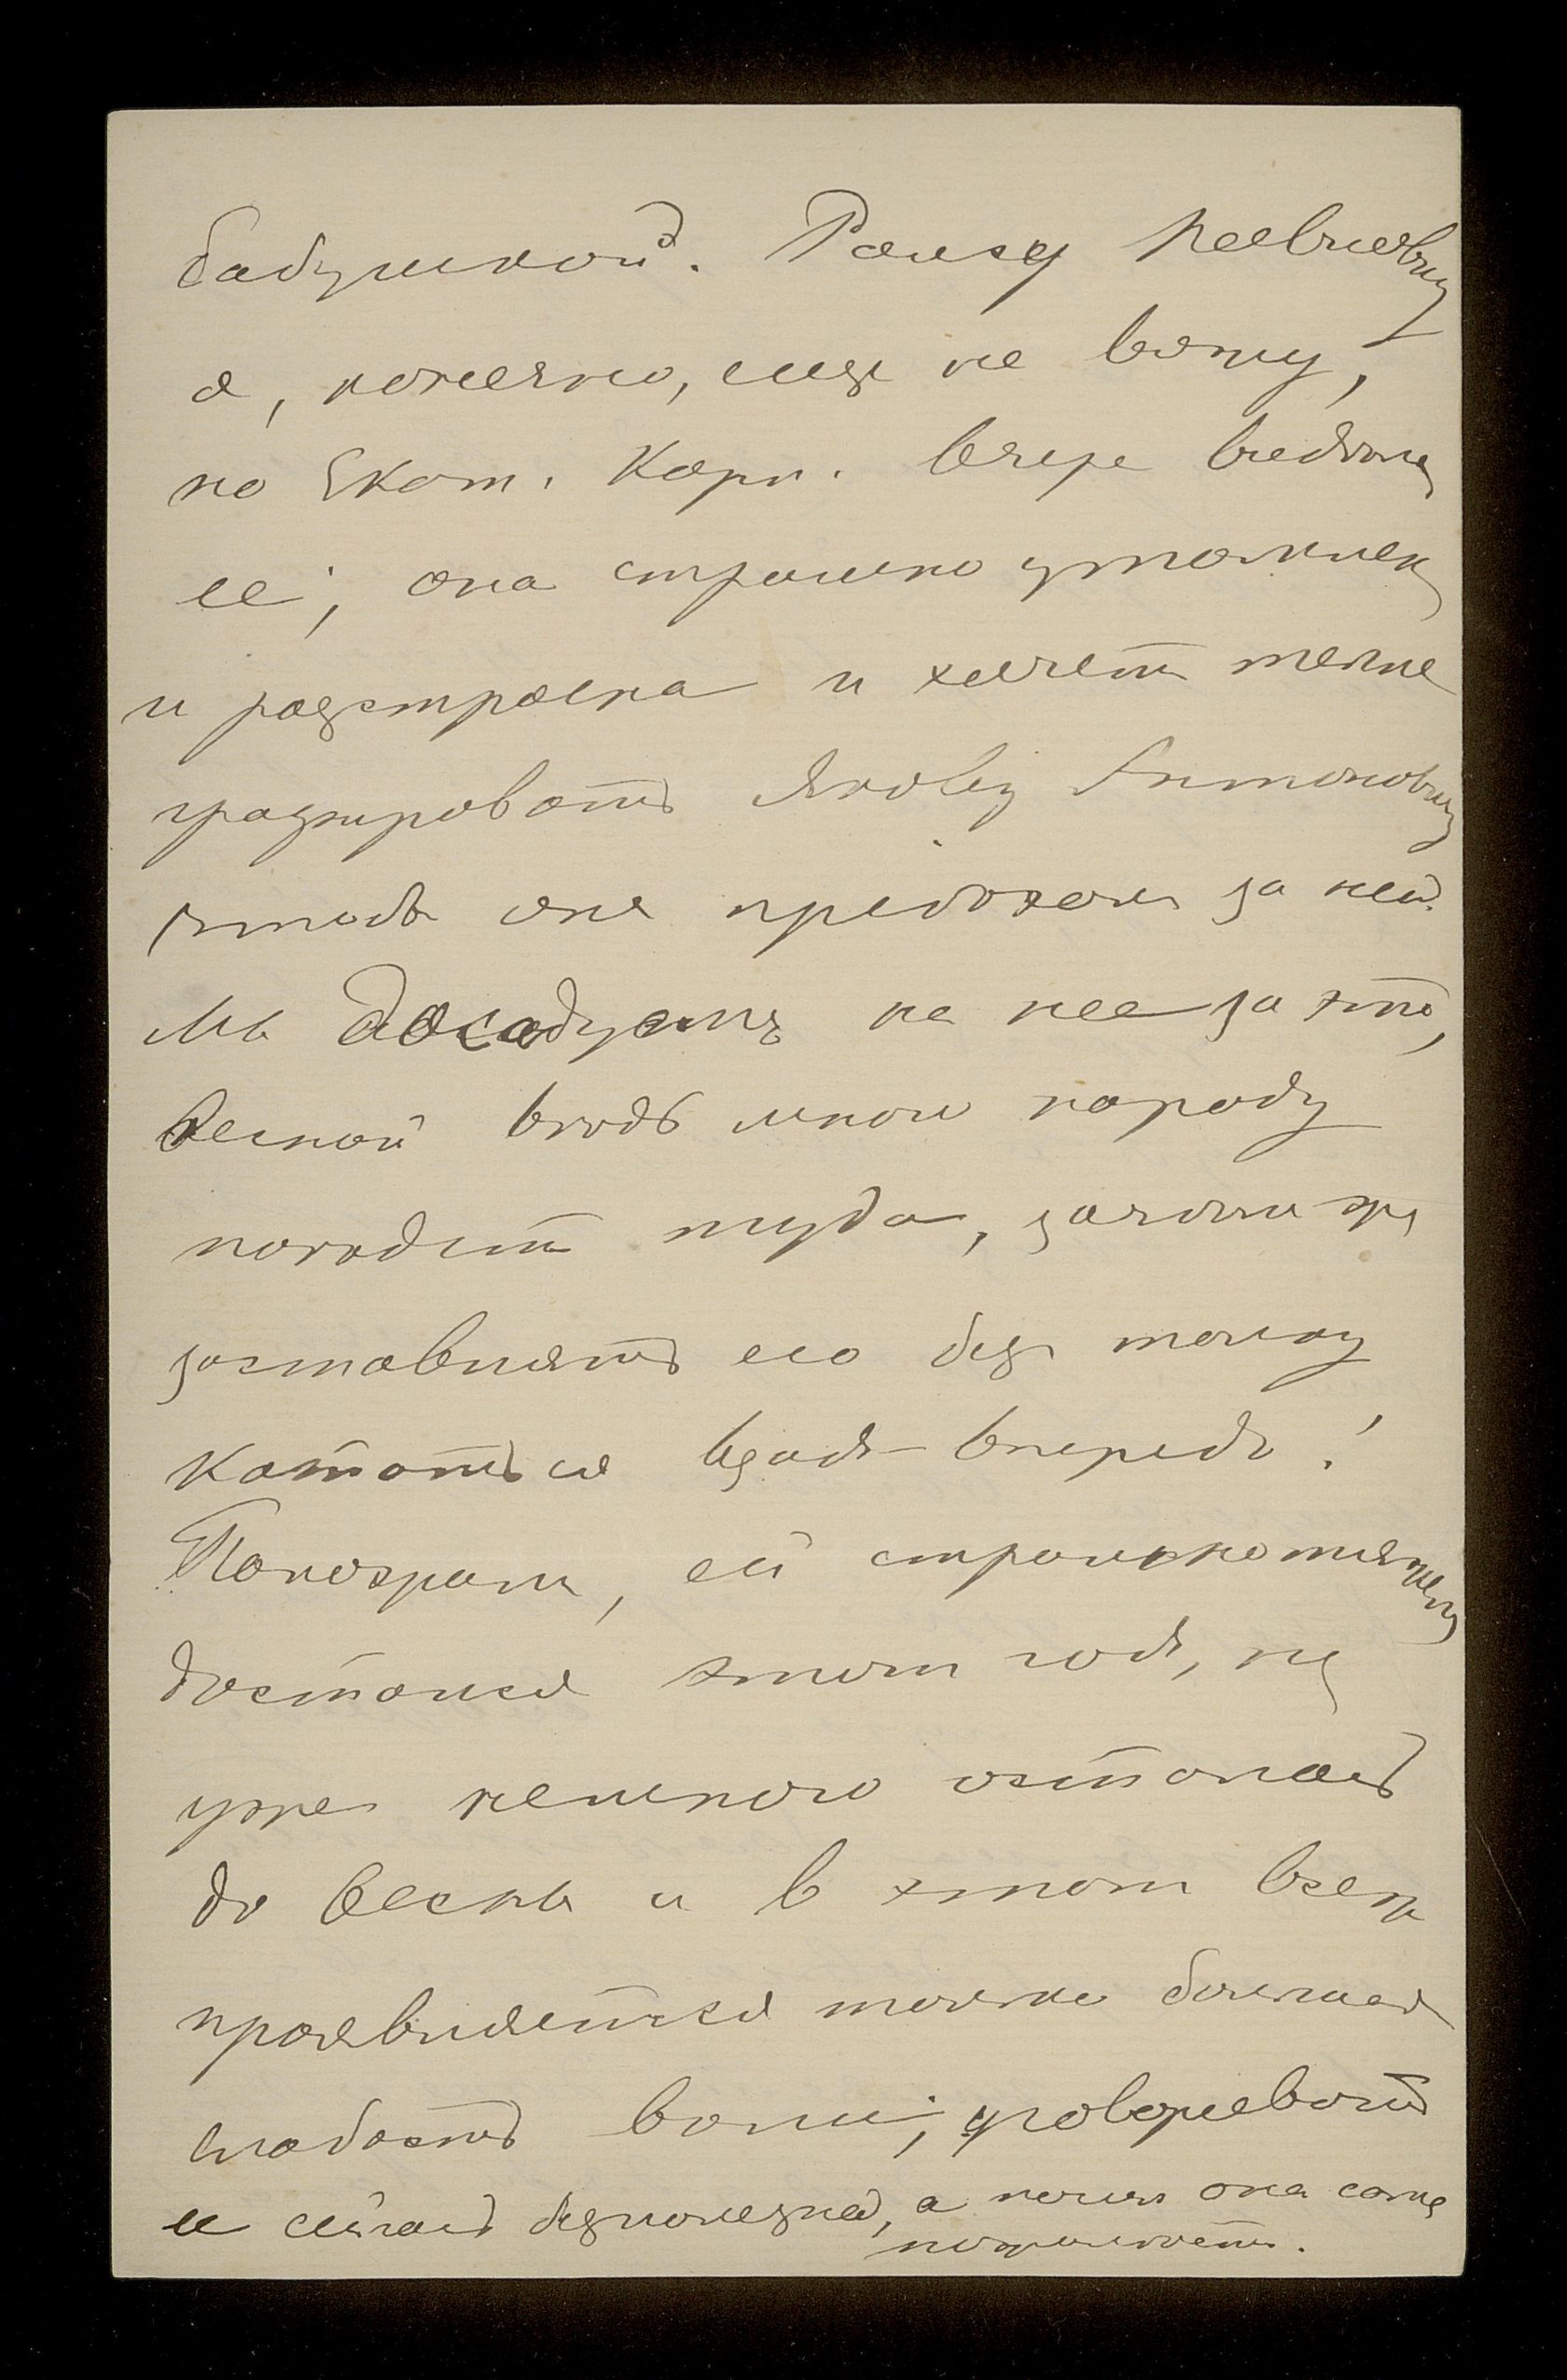 бабушкой. Розу Львовну
я, конечно, еще не вижу,
но Екат. Карл. вчера видела
ее; она страшно утомлена
и разстроена и хочет теле
графировать Якову Антоновичу
чтобы он приехал за ней.
Мы досадуем на нее за это,
весной ведь много народу
поедет туда, зачем же
заставлять его без толку
кататься взад-вперед!
Положим, ей страшно тяжело
достался этот год, но
уже немного осталось
до весны и в этом всем
проявляется только большая
слабость воли; уговаривать
ее сейчас безполезно, а потом она сама
пожалеет.